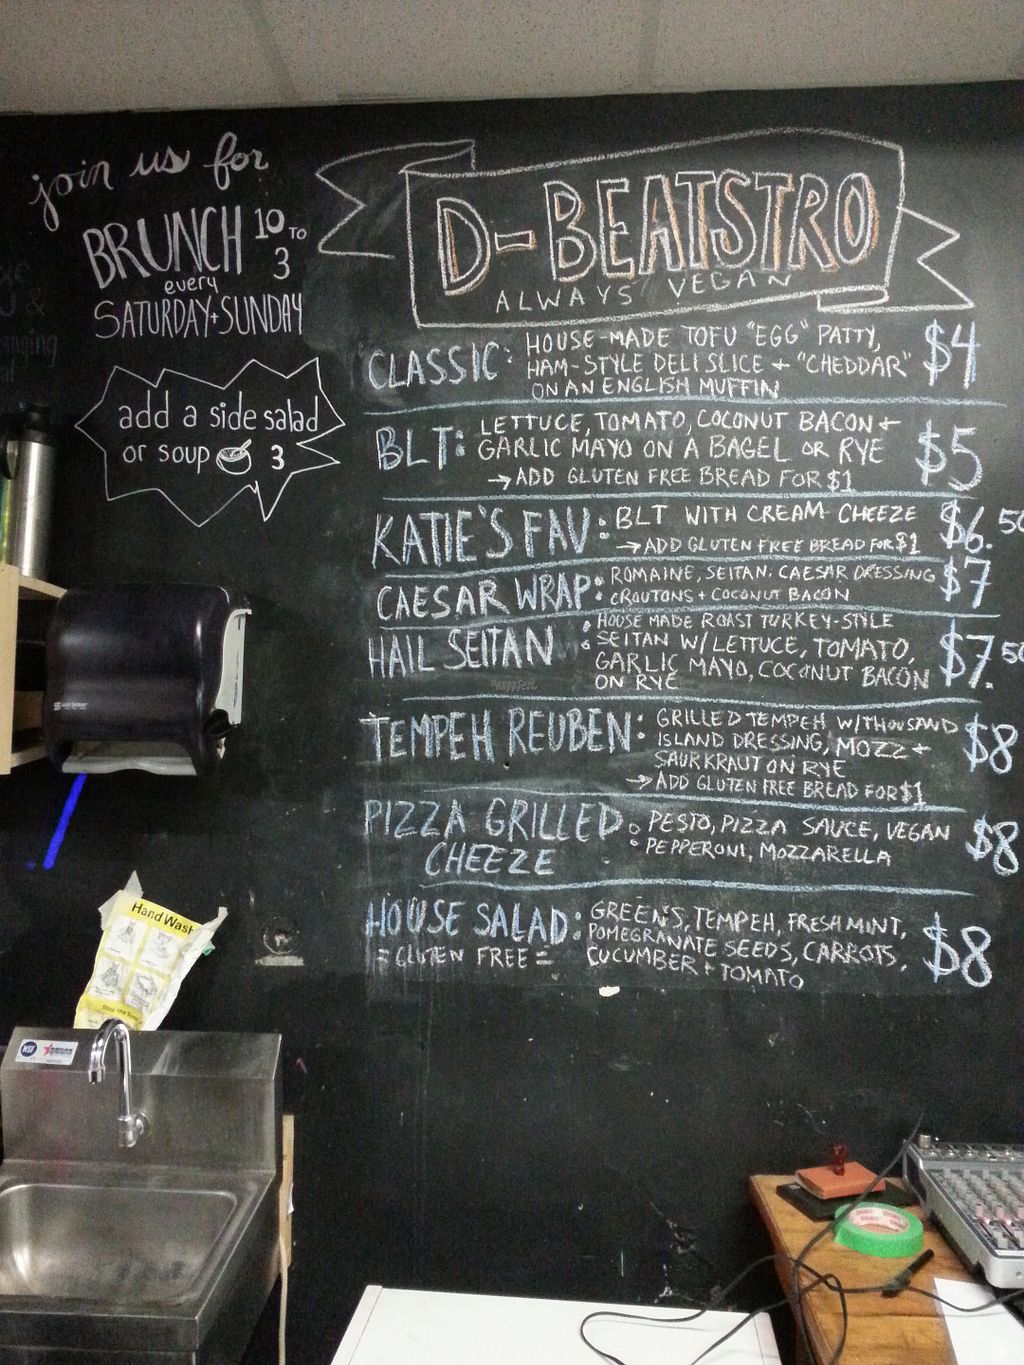 join us for
BRUNCH 10 TO 3
every
SATURDAY + SUNDAY
add a side salad
or soup 3
D-BEATSTRO
ALWAYS VEGAN
CLASSIC: HOUSE-MADE TOFU "EGG" PATTY, $4
HAM-STYLE DELI SLICE + "CHEDDAR"
ON AN ENGLISH MUFFIN
BLT: LETTUCE, TOMATO, COCONUT BACON + $5
GARLIC MAYO ON A BAGEL OR RYE
→ ADD GLUTEN FREE BREAD FOR $1
KATIE'S FAV: BLT WITH CREAM CHEEZE $6.50
→ ADD GLUTEN FREE BREAD FOR $1
CAESAR WRAP: ROMAINE, SEITAN, CAESAR DRESSING $7
CROUTONS + COCONUT BACON
HAIL SEITAN: HOUSE MADE ROAST TURKEY-STYLE $7.50
SEITAN W/ LETTUCE, TOMATO,
GARLIC MAYO, COCONUT BACON
ON RYE
TEMPEH REUBEN: GRILLED TEMPEH W/THOUSAND $8
ISLAND DRESSING, MOZZ +
SAURKRAUT ON RYE
→ ADD GLUTEN FREE BREAD FOR $1
PIZZA GRILLED CHEEZE: PESTO, PIZZA SAUCE, VEGAN $8
PEPPERONI, MOZZARELLA
HOUSE SALAD: GREENS, TEMPEH, FRESH MINT, $8
= GLUTEN FREE = POMEGRANATE SEEDS, CARROTS,
CUCUMBER + TOMATO
Hand Wash
NSF